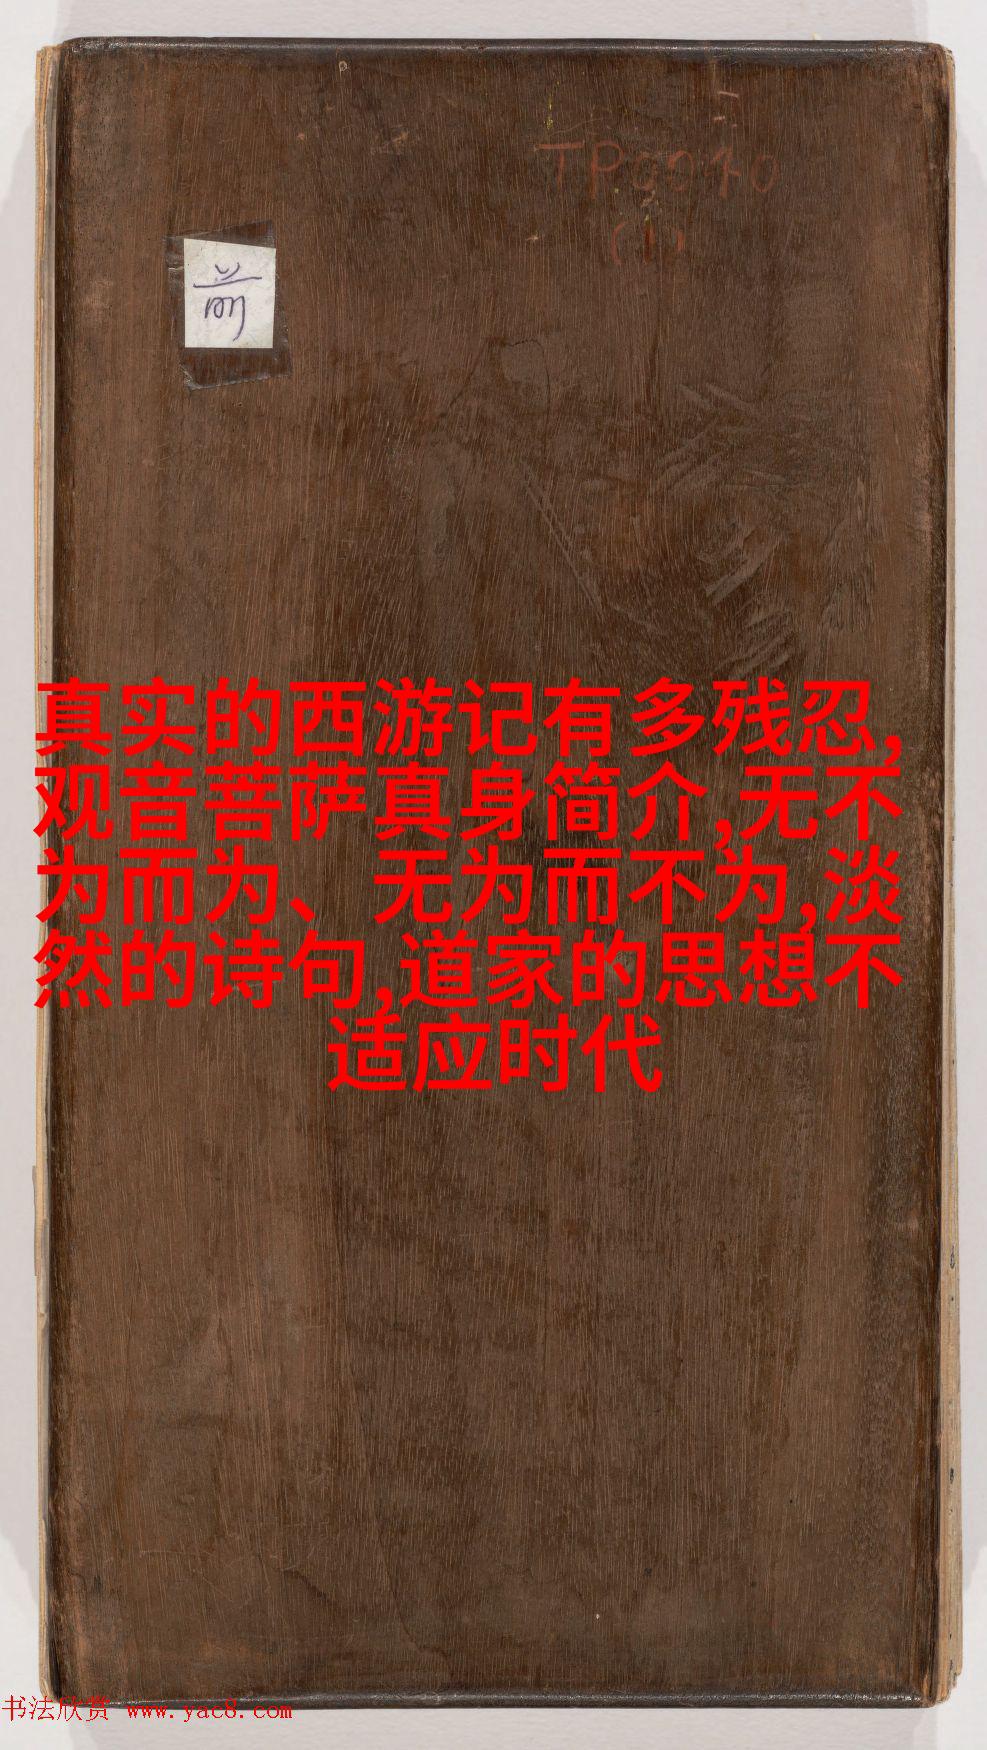 TP0040
(1)
真实的西游记有多残忍,
观音菩萨真身简介,无不
为而为、无为而不为,淡
然的诗句,道家的思想不
适应时代
书法欣赏 www.yac8.com